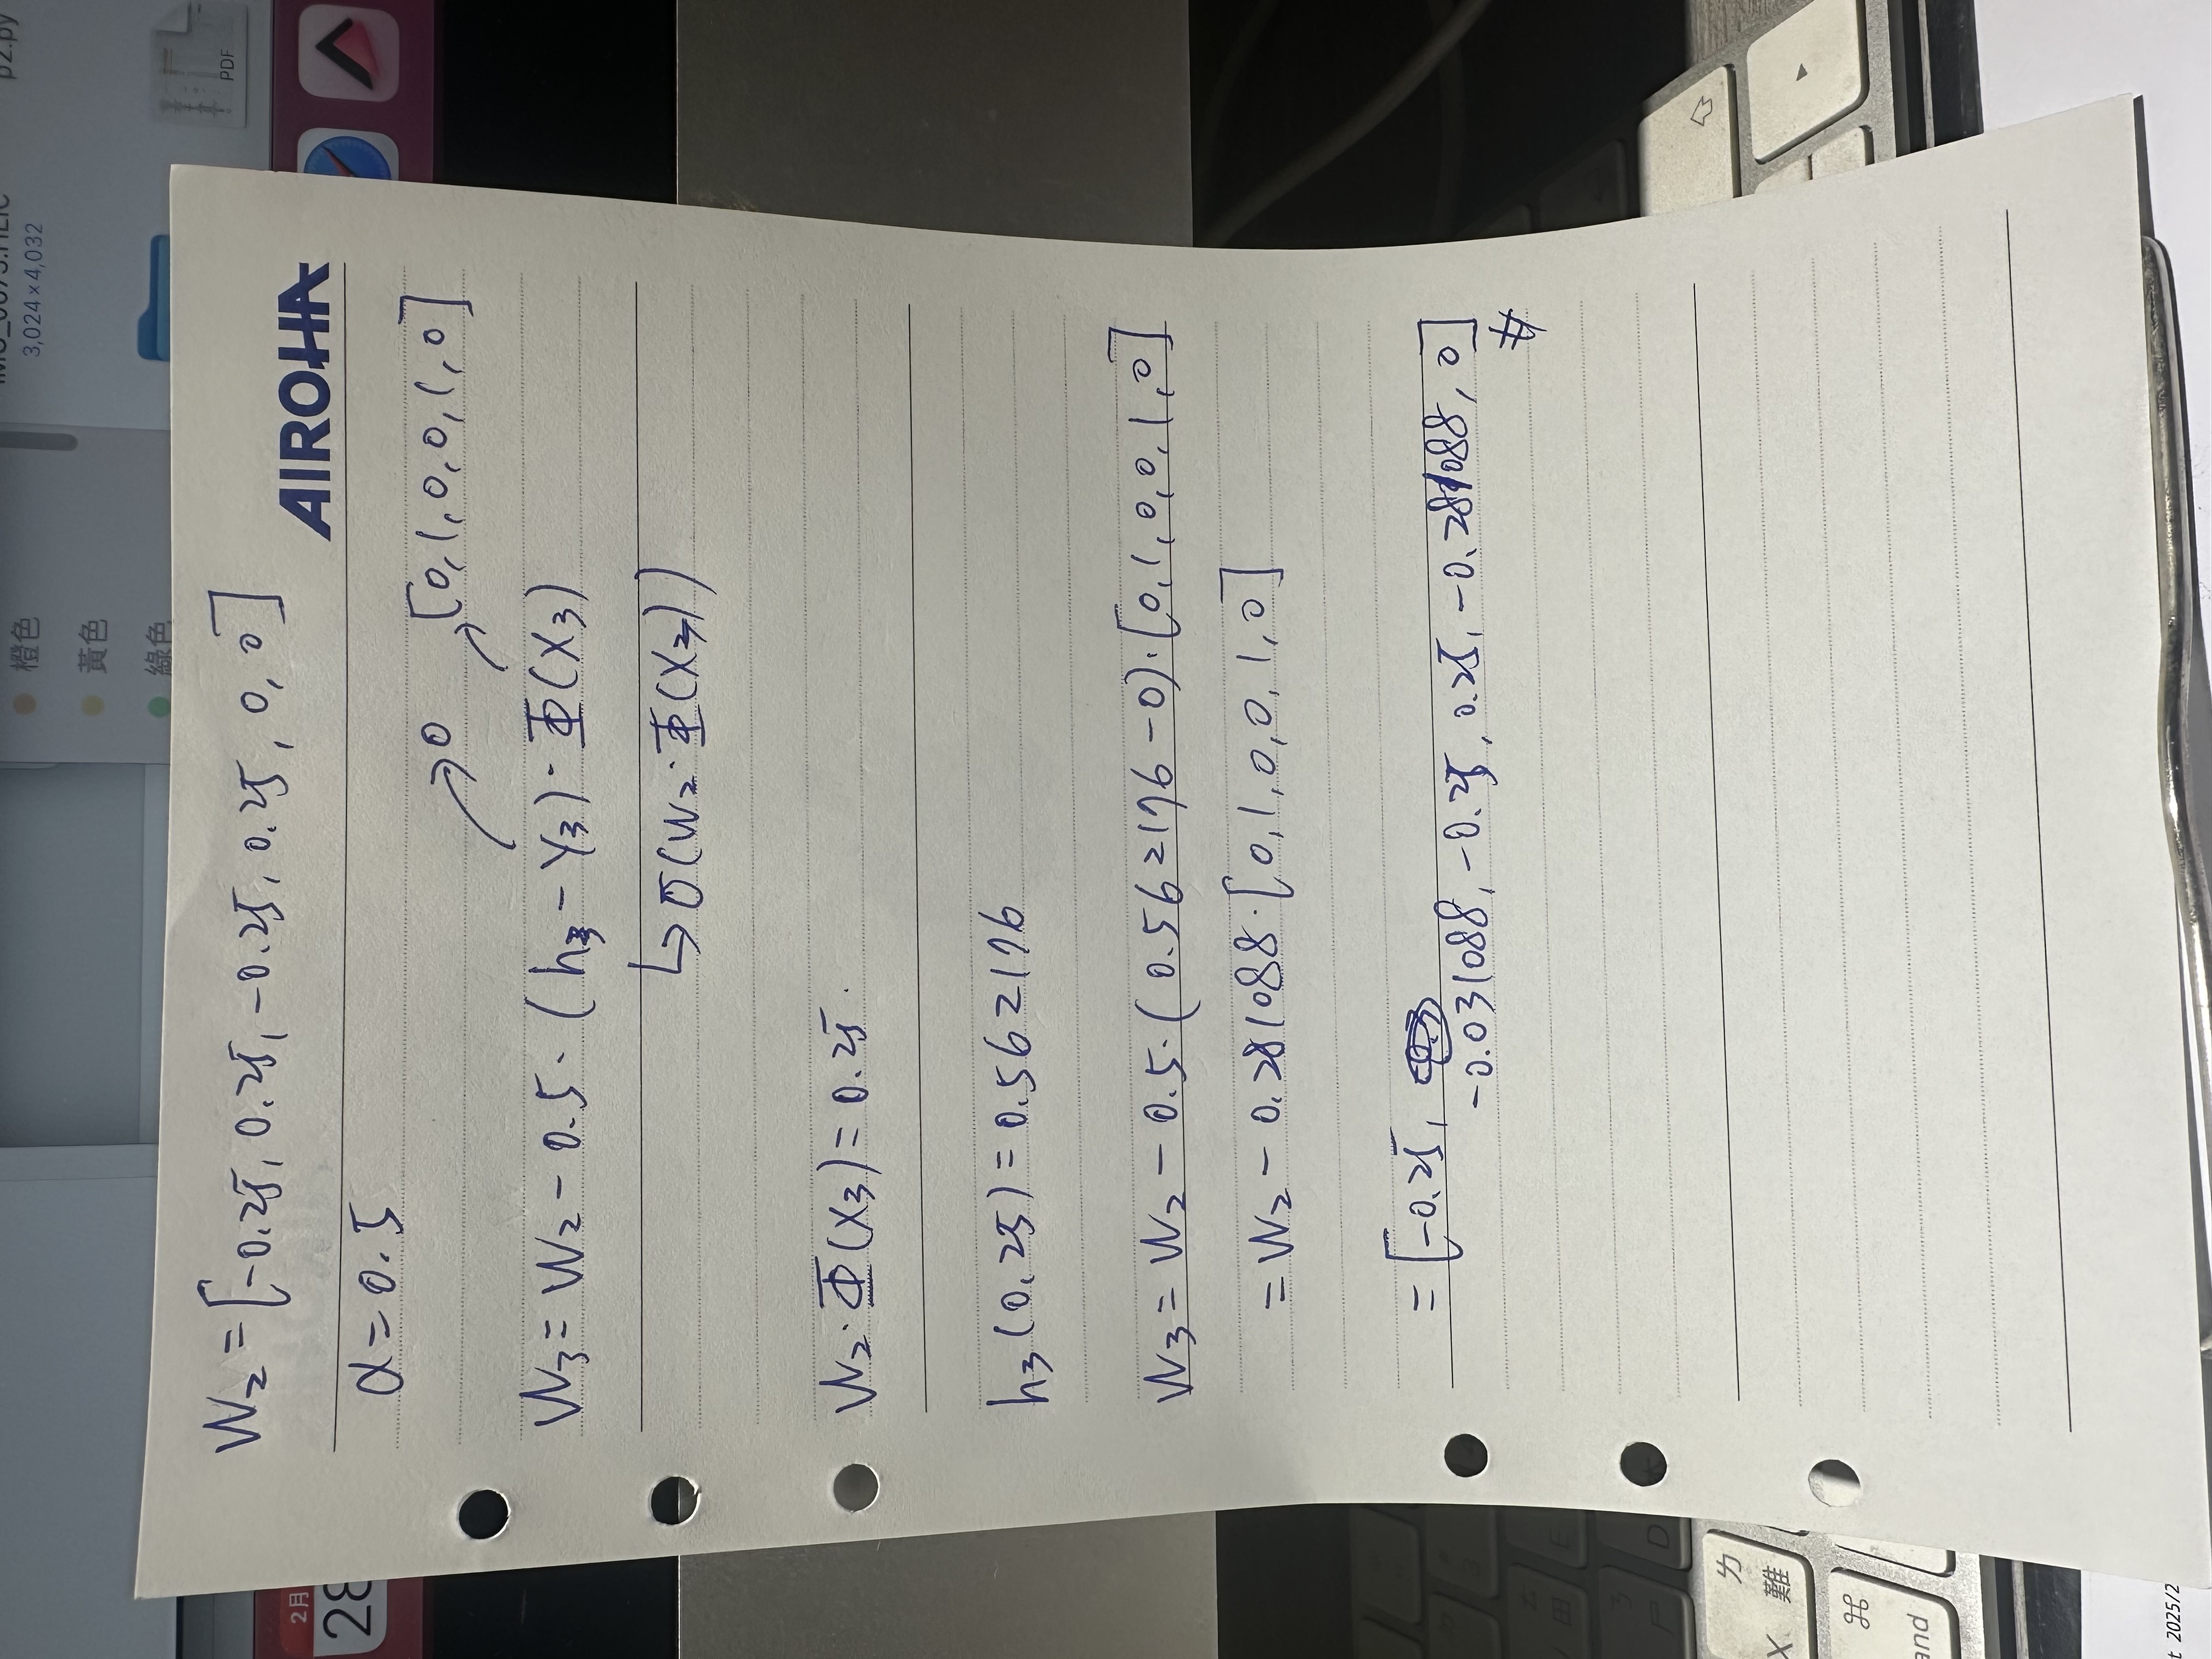 橙色
黃色
綠色
3,024×4,032
p2.py
PDF
2月
28
W₂ = [-0.25, 0.25, -0.25, 0.25, 0, 0]
AIROHA
α = 0.5
0 [0,1,0,0,1,0]
W₃ = W₂ - 0.5 · (h₃ - Y₃) · Φ(X₃)
↳ σ(W₂ · Φ(X₃))
W₂ · Φ(X₃) = 0.25.
h₃(0.25) = 0.562176
W₃ = W₂ - 0.5 · (0.562176 - 0) · [0,1,0,0,1,0]
= W₂ - 0.281088 · [0,1,0,0,1,0]
= [-0.25,
-0.031088, -0.25, 0.25, -0.281088, 0]
#
ㄌ
X 難
⌘
and
t 2025/2